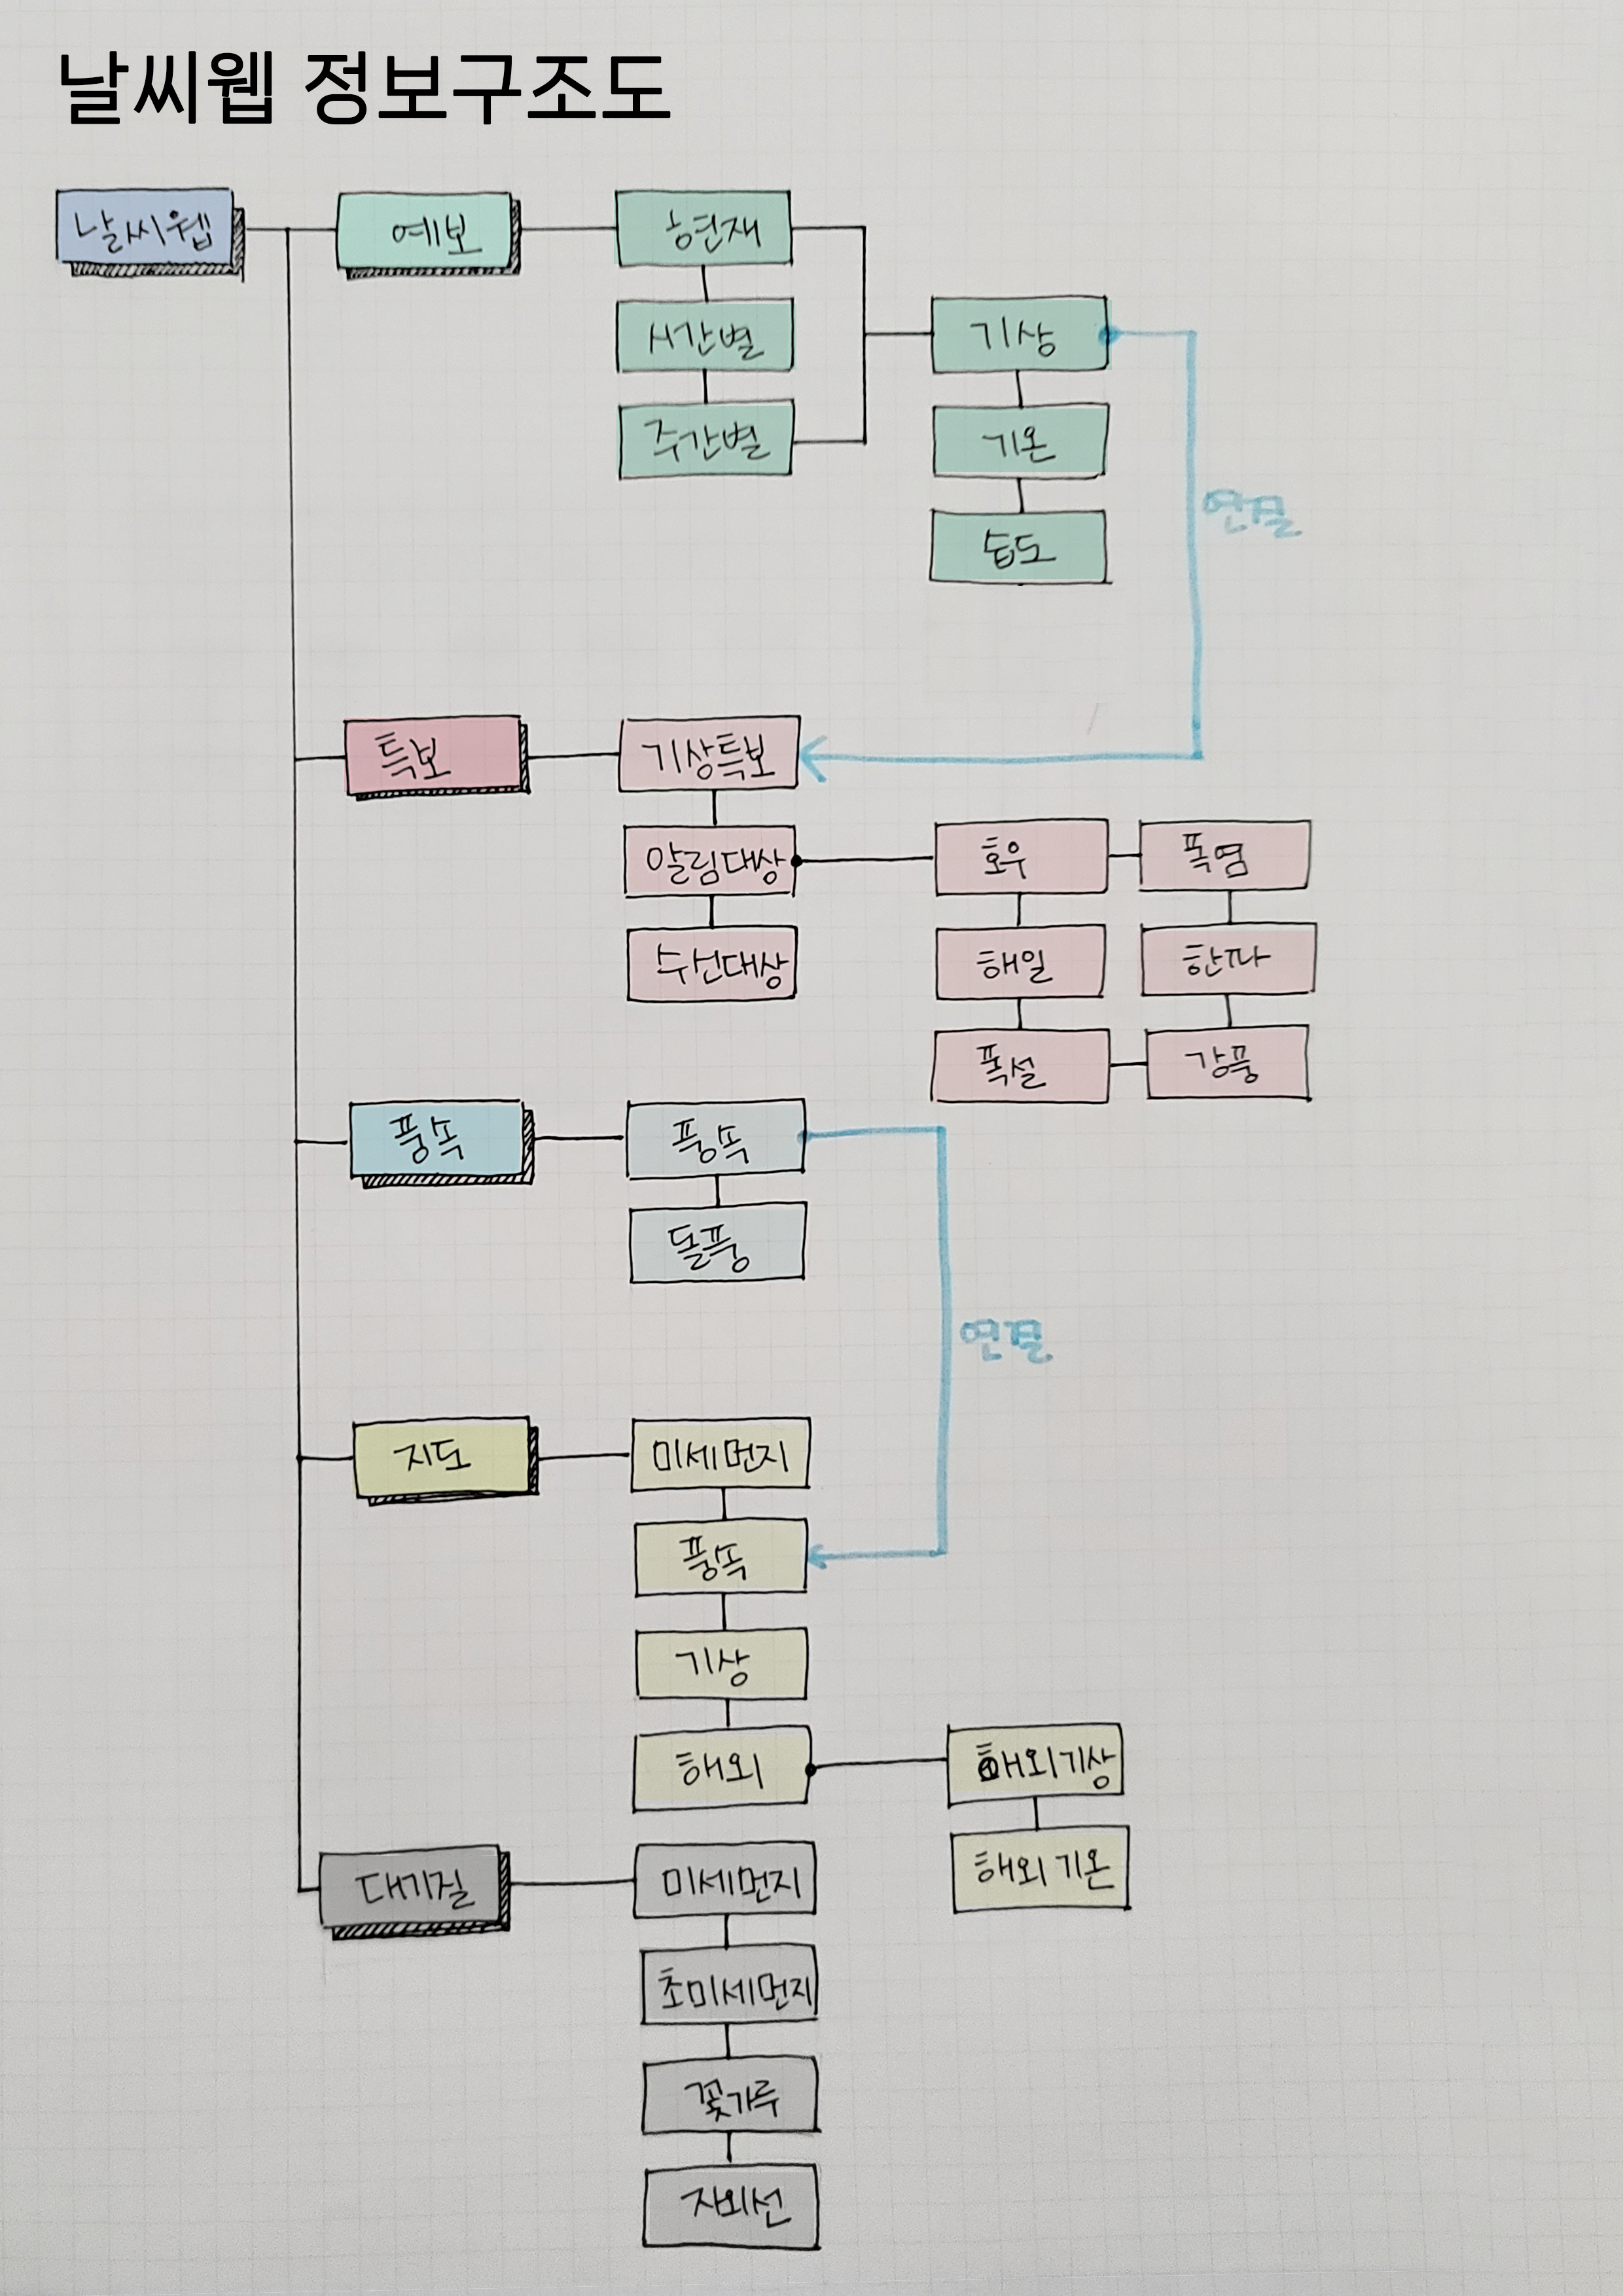 날씨웹 정보구조도
날씨웹
예보
현재
시간별
주간별
기상
기온
습도
연결
특보
기상특보
알림대상
수신대상
호우
폭염
해일
한파
폭설
강풍
풍속
풍속
돌풍
연결
지도
미세먼지
풍속
기상
해외
해외기상
해외기온
대기질
미세먼지
초미세먼지
꽃가루
자외선